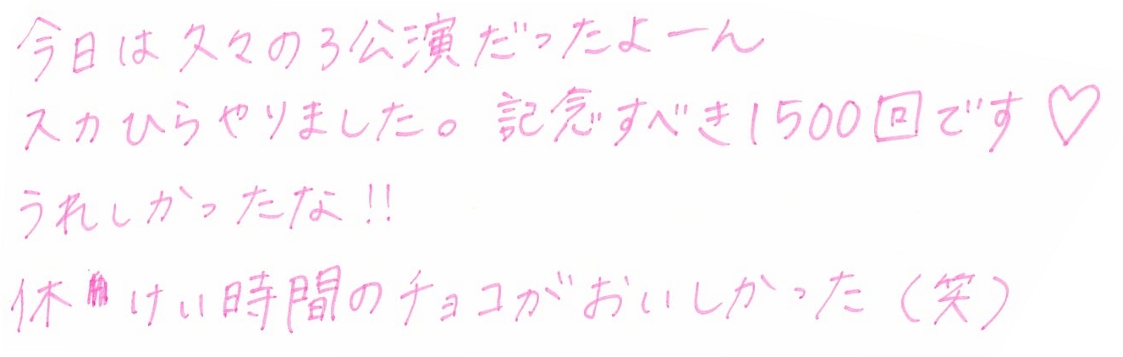 今日は久々の3公演だったよーん
スカひらやりました。記念すべき1500回です♡
うれしかったな!!
休けい時間のチョコがおいしかった(笑)